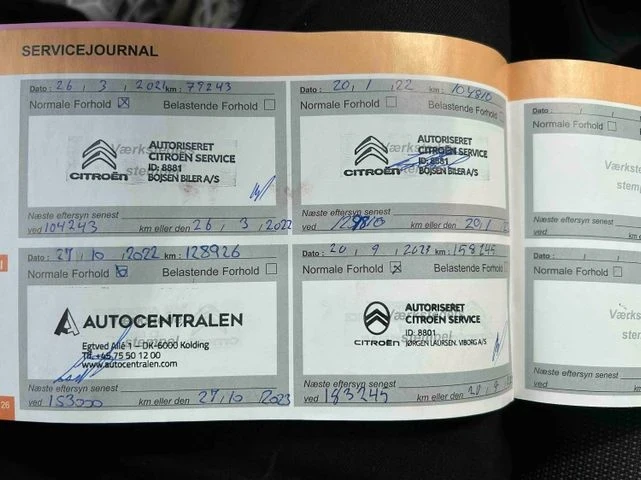 SERVICEJOURNAL
Dato: 26, 3, 2021 km: 79243
Normale Forhold ☒ Belastende Forhold ☐
Værksteds
stempel
CITROËN
AUTORISERET
CITROËN SERVICE
ID: 8881
BOJSEN BILER A/S
Næste eftersyn senest
ved 104243 km eller den 26, 3, 2022
Dato: 20, 1, 22 km: 104810
Normale Forhold ☐ Belastende Forhold
CITROËN
AUTORISERET
CITROËN SERVICE
ID: 8881
BOJSEN BILER A/S
Næste eftersyn senest
ved 129810 km eller den 20/1
Dato: 27, 10, 2022 km: 128926
Normale Forhold ☒ Belastende Forhold ☐
AUTOCENTRALEN
Egtved Allé 1 – DK-6000 Kolding
Tlf. +45 75 50 12 00
www.autocentralen.com
stempel
Næste eftersyn senest
ved 153000 km eller den 27, 10, 2023
Dato: 20, 9, 2023 km: 158245
Normale Forhold ☒ Belastende Forhold
CITROËN
AUTORISERET
CITROËN SERVICE
ID: 8801
JØRGEN LAURSEN, VIBORG A/S
Næste eftersyn senest
ved 183245 km eller den 20, 9
Dato:
Normale Forhold ☐
Værkste
stem
Næste eftersyn senest
ved
Dato:
Normale Forhold ☐
Værks
ste
Næste eftersyn senest
ved
26